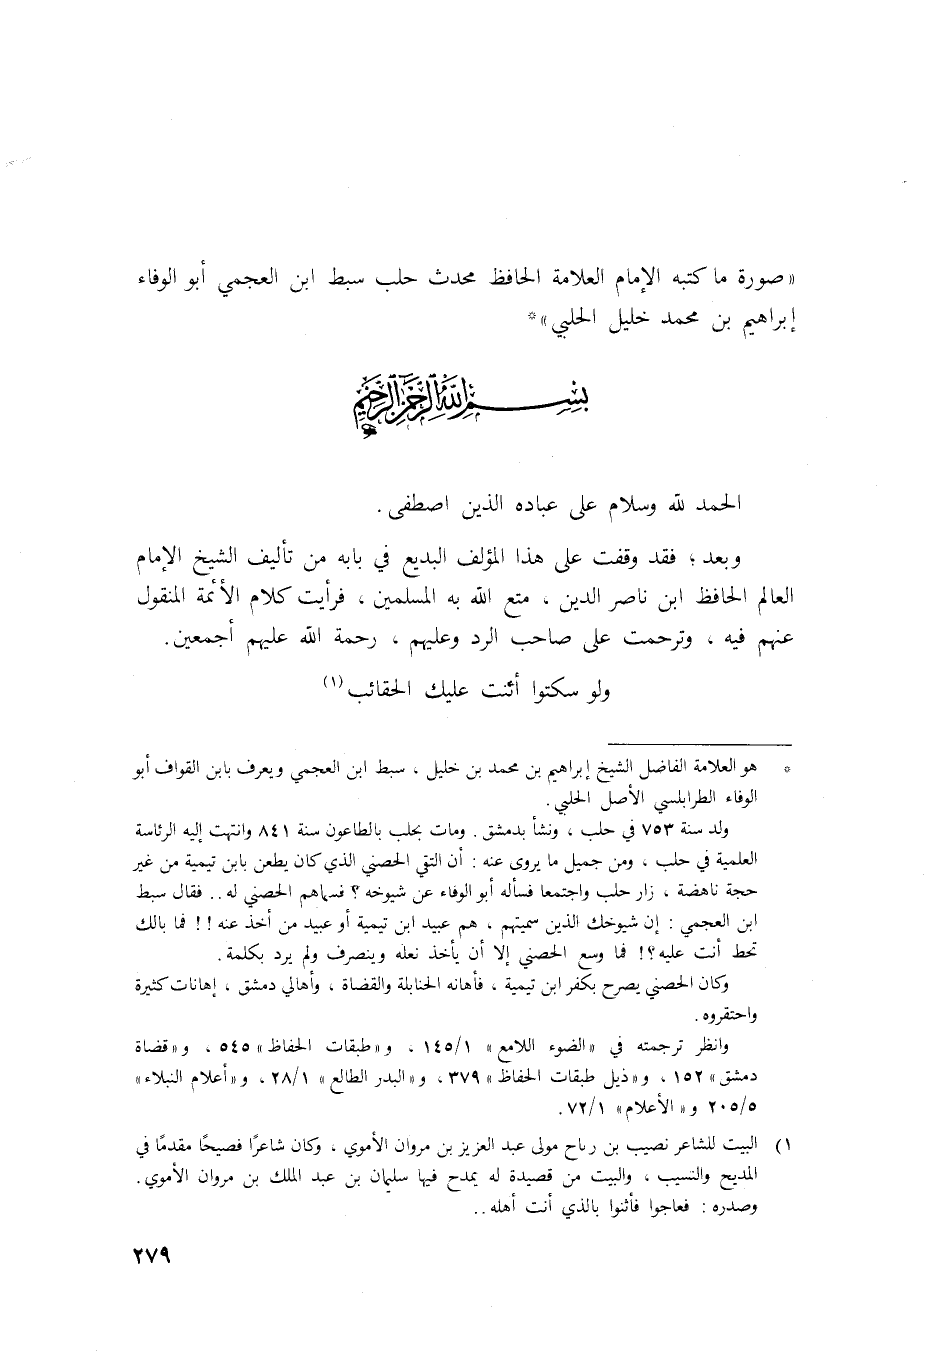 «صورة ما كتبه الإمام العلامة الحافظ محدث حلب سبط ابن العجمي أبو الوفاء
إبراهيم بن محمد خليل الحلبي»*
بسم الله الرحمن الرحيم
الحمد لله وسلام على عباده الذين اصطفى .
وبعد ؛ فقد وقفت على هذا المؤلف البديع في بابه من تأليف الشيخ الإمام
العالم الحافظ ابن ناصر الدين ، متع الله به المسلمين ، فرأيت كلام الأئمة المنقول
عنهم فيه ، وترحمت على صاحب الرد وعليهم ، رحمة الله عليهم أجمعين.
ولو سكتوا أثنت عليك الحقائب(١)
* هو العلامة الفاضل الشيخ إبراهيم بن محمد بن خليل ، سبط ابن العجمي ويعرف بابن القواف أبو
الوفاء الطرابلسي الأصل الحلبي .
ولد سنة ٧٥٣ في حلب ، ونشأ بدمشق . ومات بحلب بالطاعون سنة ٨٤١ وانتهت إليه الرئاسة
العلمية في حلب ، ومن جميل ما يروى عنه : أن التقي الحصني الذي كان يطعن بابن تيمية من غير
حجة ناهضة ، زار حلب واجتمعا فسأله أبو الوفاء عن شيوخه ؟ فسماهم الحصني له .. فقال سبط
ابن العجمي : إن شيوخك الذين سميتهم ، هم عبيد ابن تيمية أو عبيد من أخذ عنه !! فما بالك
تحط أنت عليه؟! فما وسع الحصني إلا أن يأخذ نعله وينصرف ولم يرد بكلمة .
وكان الحصني يصرح بكفر ابن تيمية ، فأهانه الحنابلة والقضاة ، وأهالي دمشق ، إهانات كثيرة
واحتقروه .
وانظر ترجمته في «الضوء اللامع» ١٤٥/١ ، و«طبقات الحفاظ» ٥٤٥ ، و«قضاة
دمشق» ١٥٢ ، و«ذيل طبقات الحفاظ» ٣٧٩ ، و«البدر الطالع» ٢٨/١ ، و«أعلام النبلاء»
٢٠٥/٥ و«الأعلام» ٧٢/١ .
١) البيت للشاعر نصيب بن رباح مولى عبد العزيز بن مروان الأموي ، وكان شاعرًا فصيحًا مقدمًا في
المديح والنسيب ، والبيت من قصيدة له يمدح فيها سليمان بن عبد الملك بن مروان الأموي .
وصدره : فعاجوا فأثنوا بالذي أنت أهله ..
٢٧٩